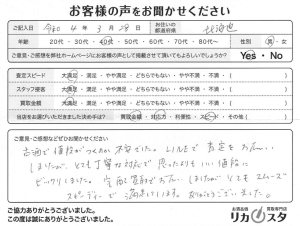 お客様の声をお聞かせください
ご記入日 令和 4 年 3 月 28 日 お住いの都道府県 北海道
年齢 20代・30代・40代・50代・60代・70代・80代〜 性別 男・女
ご意見・ご感想を弊社ホームページにお客様の声として掲載させて頂いてもよろしいでしょうか? Yes・No
査定スピード 大満足・満足・やや満足・どちらでもない・やや不満・不満・( )
スタッフ接客 大満足・満足・やや満足・どちらでもない・やや不満・不満・( )
買取金額 大満足・満足・やや満足・どちらでもない・やや不満・不満・( )
当店をお選びいただきました決め手は? 買取金額・対応力・利便性・スピード・その他( )
ご意見・ご感想などぜひお聞かせください
古酒で値段がつくのか不安でした。LINEで査定をお願い
しましたが、とても丁寧な対応で思ったよりもいい値段に
ビックリしました。宅配買取でお願いしましたがとてもスムーズ
スピーディーで満足しています。ありがとうございました。
ご協力ありがとうございました。
この度は誠にありがとうございました。
お酒高価買取専門店
リカスタ